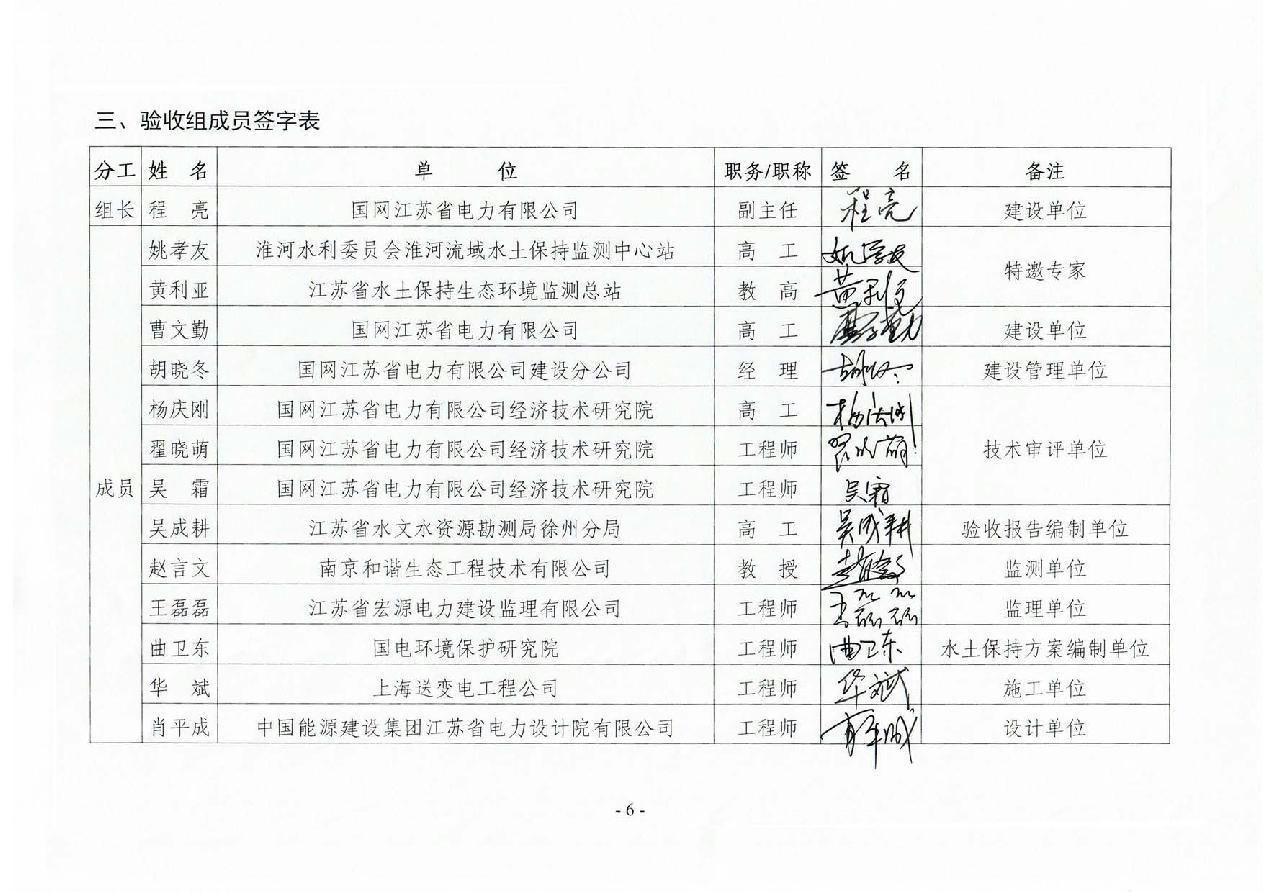 三、验收组成员签字表
分工 姓 名 单 位 职务/职称 签 名 备注
组长 程 亮 国网江苏省电力有限公司 副主任 程亮 建设单位
姚孝友 淮河水利委员会淮河流域水土保持监测中心站 高 工 姚孝友 特邀专家
黄利亚 江苏省水土保持生态环境监测总站 教 高 黄利亚
曹文勤 国网江苏省电力有限公司 高 工 建设单位
胡晓冬 国网江苏省电力有限公司建设分公司 经 理 胡晓冬 建设管理单位
杨庆刚 国网江苏省电力有限公司经济技术研究院 高 工 杨庆刚
翟晓萌 国网江苏省电力有限公司经济技术研究院 工程师 翟晓萌 技术审评单位
成员 吴 霜 国网江苏省电力有限公司经济技术研究院 工程师 吴霜
吴成耕 江苏省水文水资源勘测局徐州分局 高 工 吴成耕 验收报告编制单位
赵言文 南京和谐生态工程技术有限公司 教 授 监测单位
王磊磊 江苏省宏源电力建设监理有限公司 工程师 王磊磊 监理单位
曲卫东 国电环境保护研究院 工程师 曲卫东 水土保持方案编制单位
华 斌 上海送变电工程公司 工程师 华斌 施工单位
肖平成 中国能源建设集团江苏省电力设计院有限公司 工程师 肖平成 设计单位
- 6 -